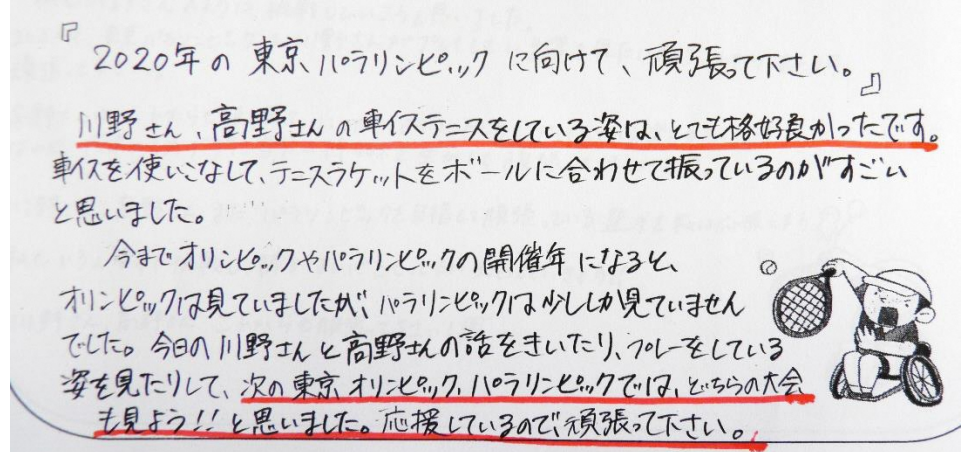 『2020年の東京パラリンピックに向けて、頑張って下さい。』
川野さん、高野さんの車イステニスをしている姿は、とても格好良かったです。
車イスを使いこなして、テニスラケットをボールに合わせて振っているのがすごい
と思いました。
今までオリンピックやパラリンピックの開催年になると、
オリンピックは見ていましたが、パラリンピックは少ししか見ていません
でした。今日の川野さんと高野さんの話をきいたり、プレーをしている
姿を見たりして、次の東京オリンピック、パラリンピックでは、どちらの大会
も見よう!!と思いました。応援しているので、頑張って下さい。